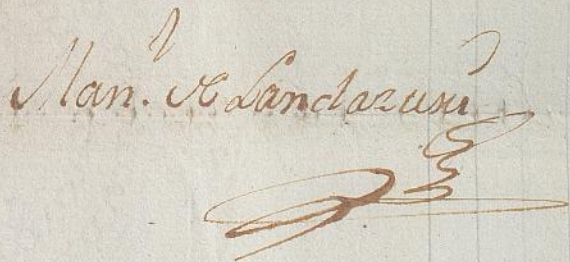 Man.l de Landazuri